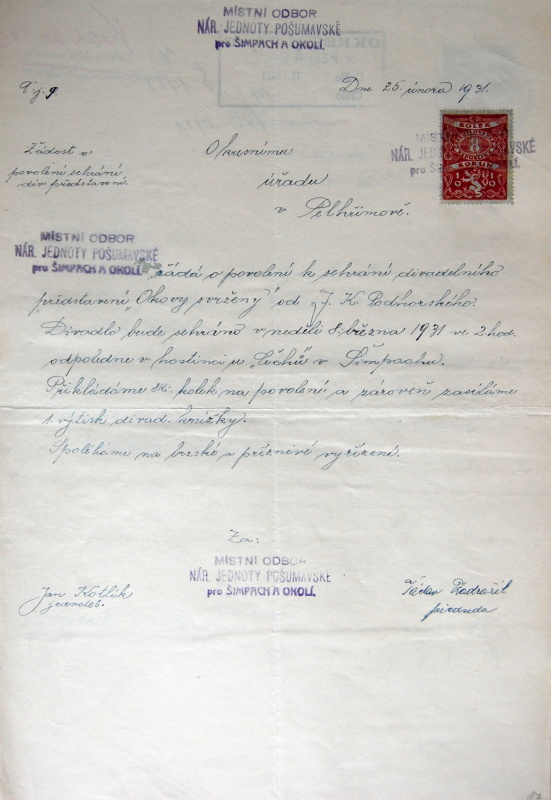 MÍSTNÍ ODBOR
NÁR. JEDNOTY POŠUMAVSKÉ
pro ŠIMPACH A OKOLÍ.
Dne 25. února 1931.
Žádost o
povolení sehrání
div. představení.
Okresnímu
úřadu
v Pelhřimově.
ČR
KOLEK
8
KORUN
MÍSTNÍ ODBOR
NÁR. JEDNOTY POŠUMAVSKÉ
pro ŠIMPACH A OKOLÍ.
MÍSTNÍ ODBOR
NÁR. JEDNOTY POŠUMAVSKÉ
pro ŠIMPACH A OKOLÍ.
žádá o povolení k sehrání divadelního
představení „Okovy svrženy" od J. K. Podhorského.
Divadlo bude sehráno v neděli 8. března 1931 ve 2. hod.
odpoledne v hostinci u „Čechů" v Šimpachu.
Přikládáme 8Kč kolek na povolení a zároveň zasíláme
1. výtisk divad. knížky.
Spoléháme na brzské a příznivé vyřízení.
Za:
MÍSTNÍ ODBOR
NÁR. JEDNOTY POŠUMAVSKÉ
pro ŠIMPACH A OKOLÍ.
Jan Kotlík
jednatel.
Václav Zadražil
předseda